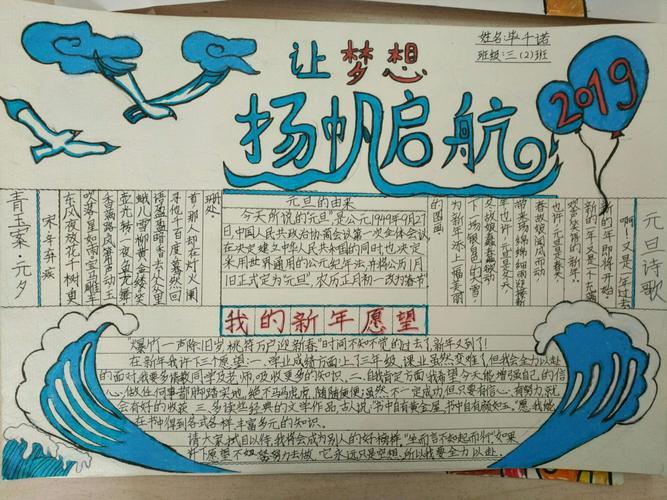 姓名:毕千诺
班级:三(2)班
让梦想
扬帆启航
2019
青玉案·元夕
宋·辛弃疾
东风夜放花千树更
吹落星如雨宝马雕车
香满路凤箫声动玉
壶光转一夜鱼龙舞
蛾儿雪柳黄金缕笑
语盈盈暗香去众里
寻他千百度蓦然回
首那人却在灯火阑
珊处。
元旦的由来
今天所说的"元旦"是公元1949年9月27
日中国人民政治协商会议第一次全体会议
在决定建立中华人民共和国的同时也决定
采用世界通用的公元纪年法,并将公历1月
1日正式定为元旦",农历正月初一改为春节"
元旦诗歌
啊!又是一年过去
新的一年,又是二零一九满
春姑娘闻风而动
也许元旦是春天
为新年添上一幅美丽
的图画
我的新年愿望
"爆竹一声除旧岁,桃符万户迎新春"时间不知不觉的过去了,新年又到了!
在新年我许下三个愿望:一、学业成绩方面:上了三年级,课业虽然变难了,但我会全力以赴
的面对,我要多请教同学及老师,吸收更多的知识。二、自我肯定方面:我希望今天能增强自己的信
心,做任何事都脚踏实地,绝不马马虎虎,随随便便,虽然,不一定成功,但只要有信心,有努力,就
会有好的收获 三、多读些经典的文学作品,古人说,"书中自有黄金屋,书中自有颜如玉。"愿我能
在书中得到各式各样丰富多元的知识。
请大家拭目以待,我将会成为别人的好榜样,"坐而言不如起而行"如果
许下愿望不努力去做,它永远只是空想,所以我要全力以赴。